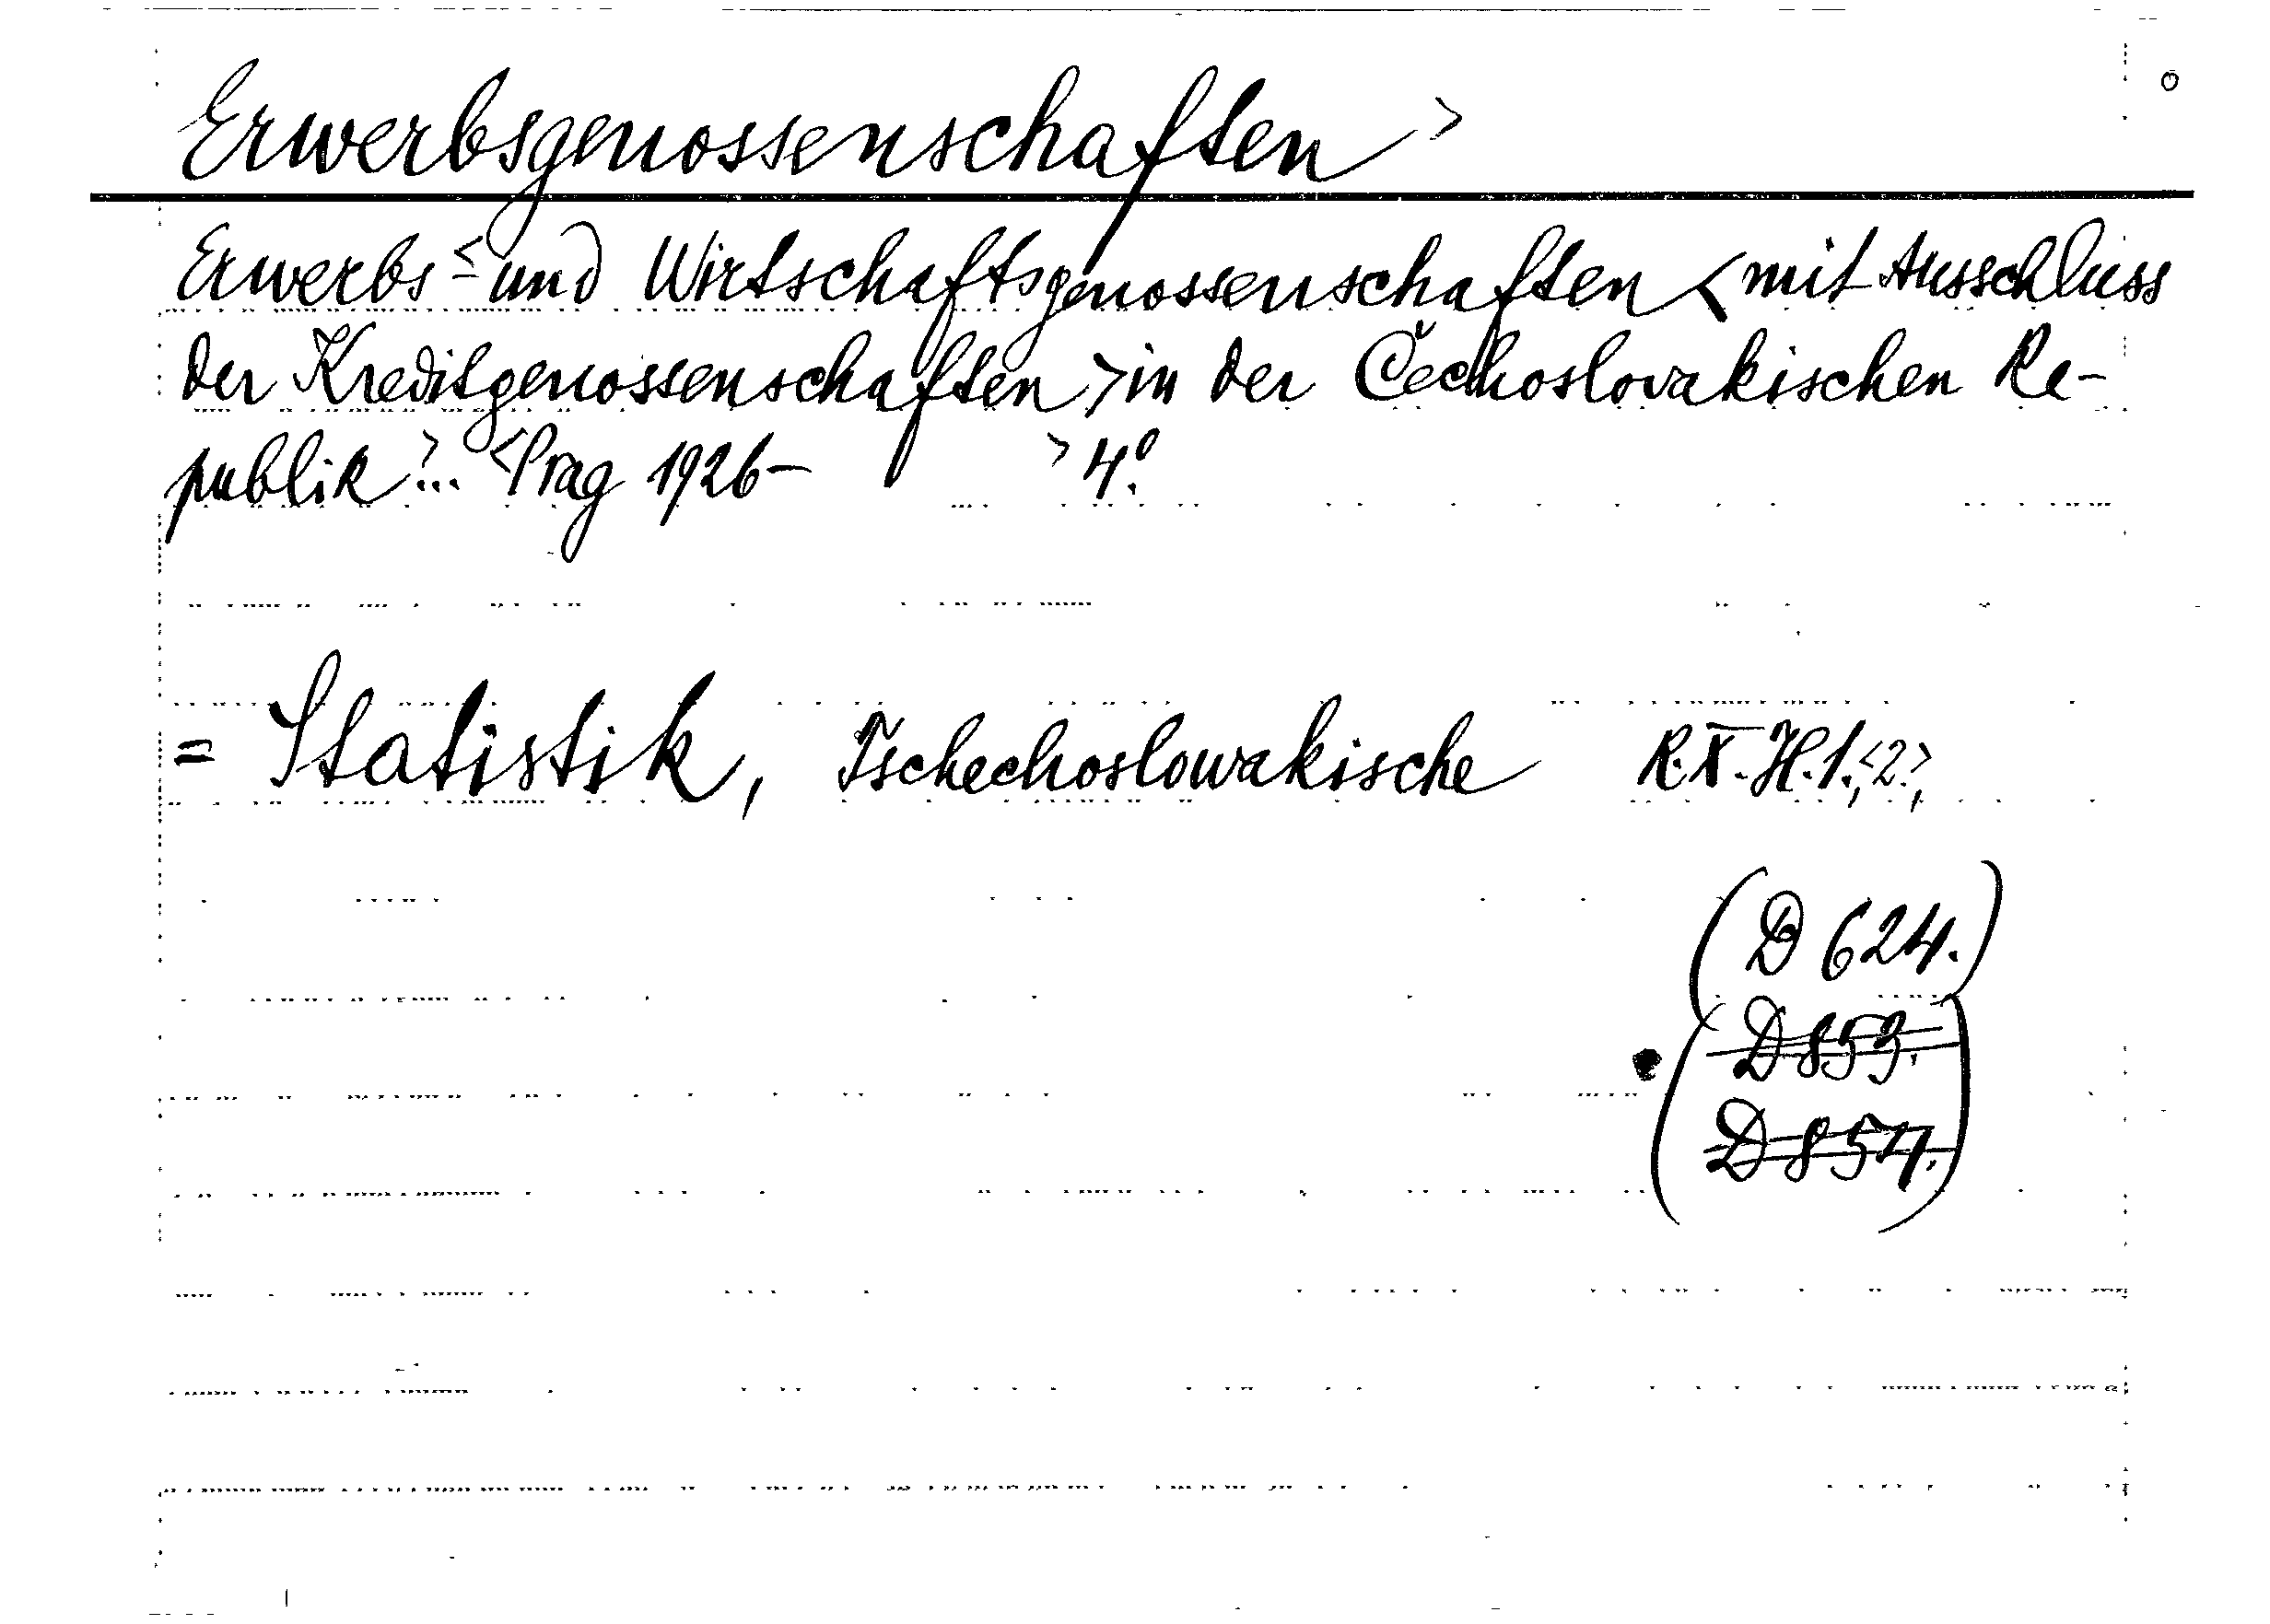 Erwerbsgenossenschaften >
Erwerbs <= und Wirtschaftsgenossenschaften < mit Ausschluss
der Kreditgenossenschaften > in der Čechoslovakischen Re-
publik >... <Prag 1926- > 4°.
= Statistik, Tschechoslowakische R. X. H. 1.,<2.>,
(D 624.)
(D 853.
D 854.)